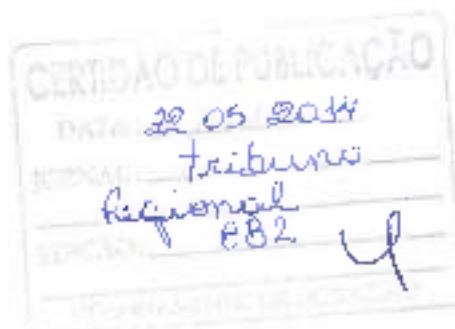 CERTIDÃO DE PUBLICAÇÃO
DATA: 22 05 2014
JORNAL: tribuna
Regional
EDIÇÃO: 682